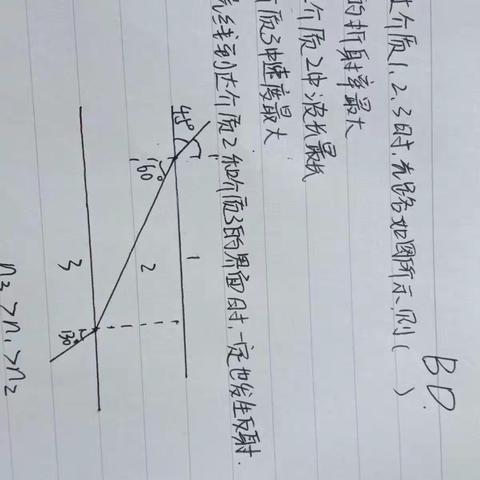 BD
过介质1、2、3时,光路如图所示,则( )
的折射率最大
介质2中波长最长
质3中速度最大
光线到达介质2和介质3的界面时,一定也发生反射.
45°
60°
30°
1
2
3
n₃>n₁>n₂